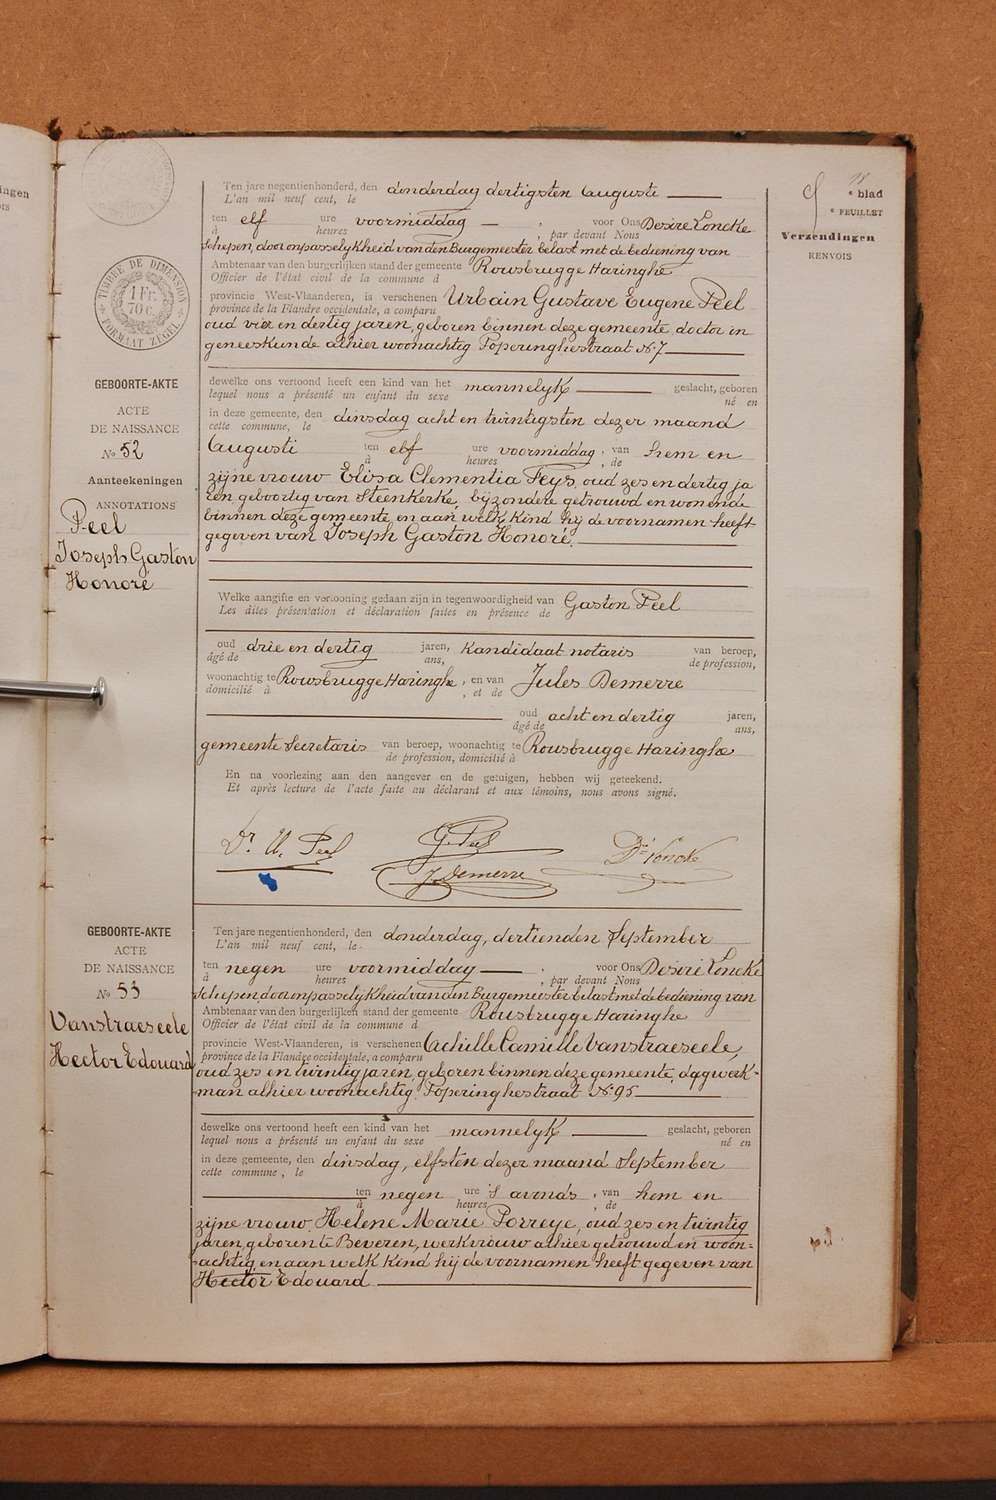 ingen
18
9 e blad
e FEUILLET
Verzendingen
RENVOIS
TIMBRE DE DIMENSION
1 Fr.
70 c.
FORMAAT ZEGEL
Ten jare negentienhonderd, den donderdag dertigsten Auguste
L'an mil neuf cent, le
ten elf ure voormiddag, voor Ons Desiré Loncke
à heures , par devant Nous
schepen, door onpasselykheid van den Burgemeester belast met de bediening van
Ambtenaar van den burgerlijken stand der gemeente Rousbrugge Haringhe
Officier de l'état civil de la commune d
provincie West-Vlaanderen, is verschenen Urbain Gustave Eugene Peel
province de la Flandre occidentale, a comparu
oud vier en dertig jaren, geboren binnen deze gemeente, doctor in
geneeskunde alhier woonachtig Poperinghestraat No 7
GEBOORTE-AKTE
ACTE
DE NAISSANCE
No 52
Aanteekeningen
ANNOTATIONS
Peel
Joseph Gaston
Honoré
dewelke ons vertoond heeft een kind van het mannelyk geslacht, geboren
lequel nous a présenté un enfant du sexe né en
in deze gemeente, den dinsdag acht en twintigsten dezer maand
cette commune, le
Augusti ten elf ure voormiddag, van hem en
à heures , de
zijne vrouw Elisa Clementia Feys, oud zes en dertig ja
ren geboortig van Steenkerke, byzondere getrouwd en wonende
binnen deze gemeente, en aan welk kind hij de voornamen heeft
gegeven van Joseph Gaston Honoré.
Welke aangifte en vertooning gedaan zijn in tegenwoordigheid van Gaston Peel
Les dites présentation et déclaration faites en présence de
oud drie en dertig jaren, kandidaat notaris van beroep,
âgé de ans, de profession,
woonachtig te Rousbrugge Haringhe, en van Jules Demerre
domicilié à , et de
oud acht en dertig jaren,
âgé de ans,
gemeente Secretaris van beroep, woonachtig te Rousbrugge Haringhe
de profession, domicilié à
En na voorlezing aan den aangever en de getuigen, hebben wij geteekend.
Et après lecture de l'acte faite au déclarant et aux témoins, nous avons signé.
Dr U. Peel
G. Peel
J. Demerre
Dré Loncke
GEBOORTE-AKTE
ACTE
DE NAISSANCE
No 53
Vanstraeseele
Hector Edouard
Ten jare negentienhonderd, den donderdag, dertienden September
L'an mil neuf cent, le
ten negen ure voormiddag, voor Ons Desiré Loncke
à heures , par devant Nous
schepen, door onpasselykheid van den Burgemeester belast met de bediening van
Ambtenaar van den burgerlijken stand der gemeente Rousbrugge Haringhe
Officier de l'état civil de la commune d
provincie West-Vlaanderen, is verschenen Achille Camille Vanstraeseele,
province de la Flandre occidentale, a comparu
oud zes en twintig jaren, geboren binnen deze gemeente, dagwerk-
man alhier woonachtig Poperinghestraat No 95
dewelke ons vertoond heeft een kind van het mannelyk geslacht, geboren
lequel nous a présenté un enfant du sexe né en
in deze gemeente, den dinsdag, elfsten dezer maand September
cette commune, le
ten negen ure 's avonds, van hem en
à heures , de
zijne vrouw, Helene Marie Porreye, oud zes en twintig
jaren, geboren te Beveren, werkvrouw alhier getrouwd en woon-
achtig, en aan welk kind hij de voornamen heeft gegeven van
Hector Edouard